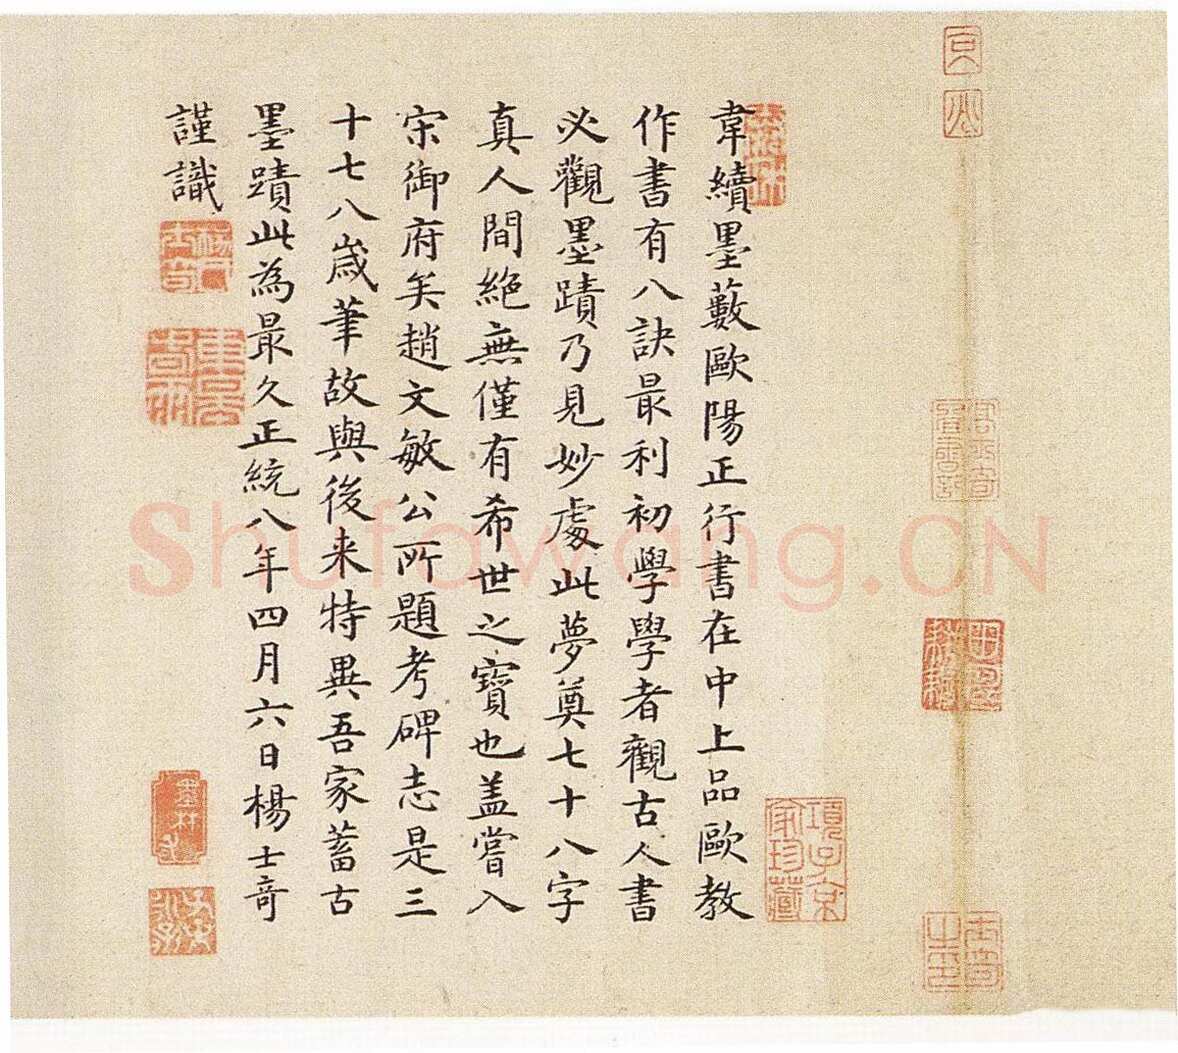 韋續墨藪歐陽正行書在中上品歐教
作書有八訣最利初學學者觀古人書
必觀墨蹟乃見妙處此夢奠七十八字
真人間絕無僅有希世之寶也盖嘗入
宋御府矣趙文敏公所題考碑志是三
十七八歲筆故與後来特異吾家蓄古
墨蹟此為最久正統八年四月六日楊士奇
謹識
項子京家珍藏
墨林
Shufawang.CN